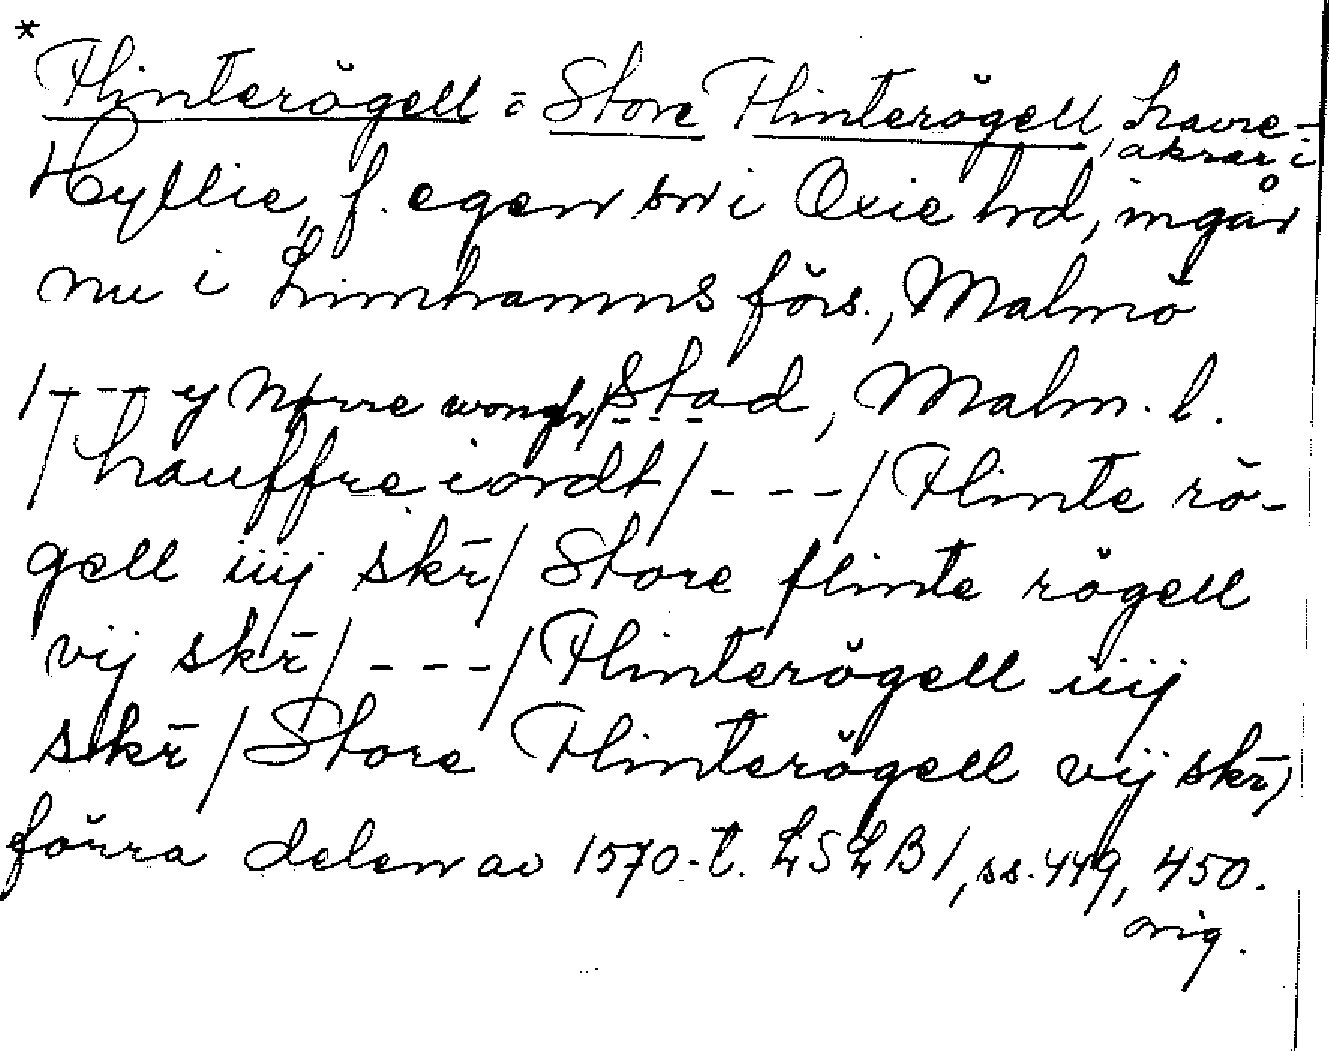 *
Flinterögell o Store Flinterögell, havre-
åkrar i
Hyllie, f. egen sn i Oxie hd, ingår
nu i Limhamns förs., Malmö
/---y Nørre wongh/ stad, Malm. l.
/hauffre iordt/---/Flinte rö-
gell iiij skr̄/ Store flinte rögell
vij skr̄/---/Flinterögell iiij
skr̄/Store Flinterögell vij skr̄/
förra delen av 1570-t. LSLB1, ss. 449, 450.
orig.